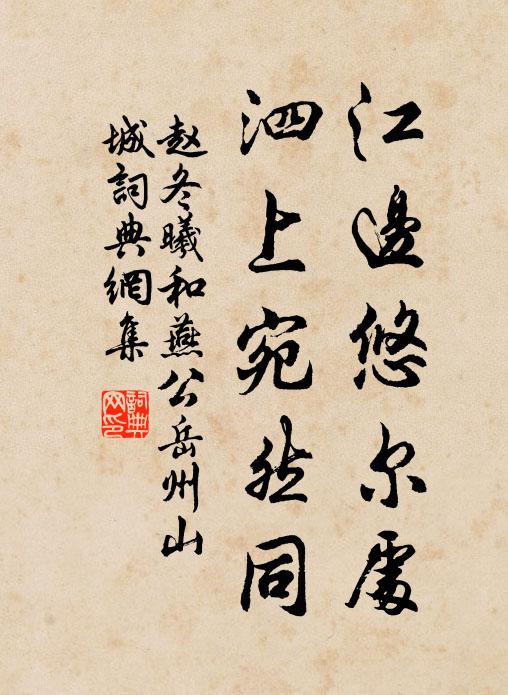 江邊悠尔處
泗上宛然同
赵冬曦和燕公岳州山
城詞典網集
詞典
网印